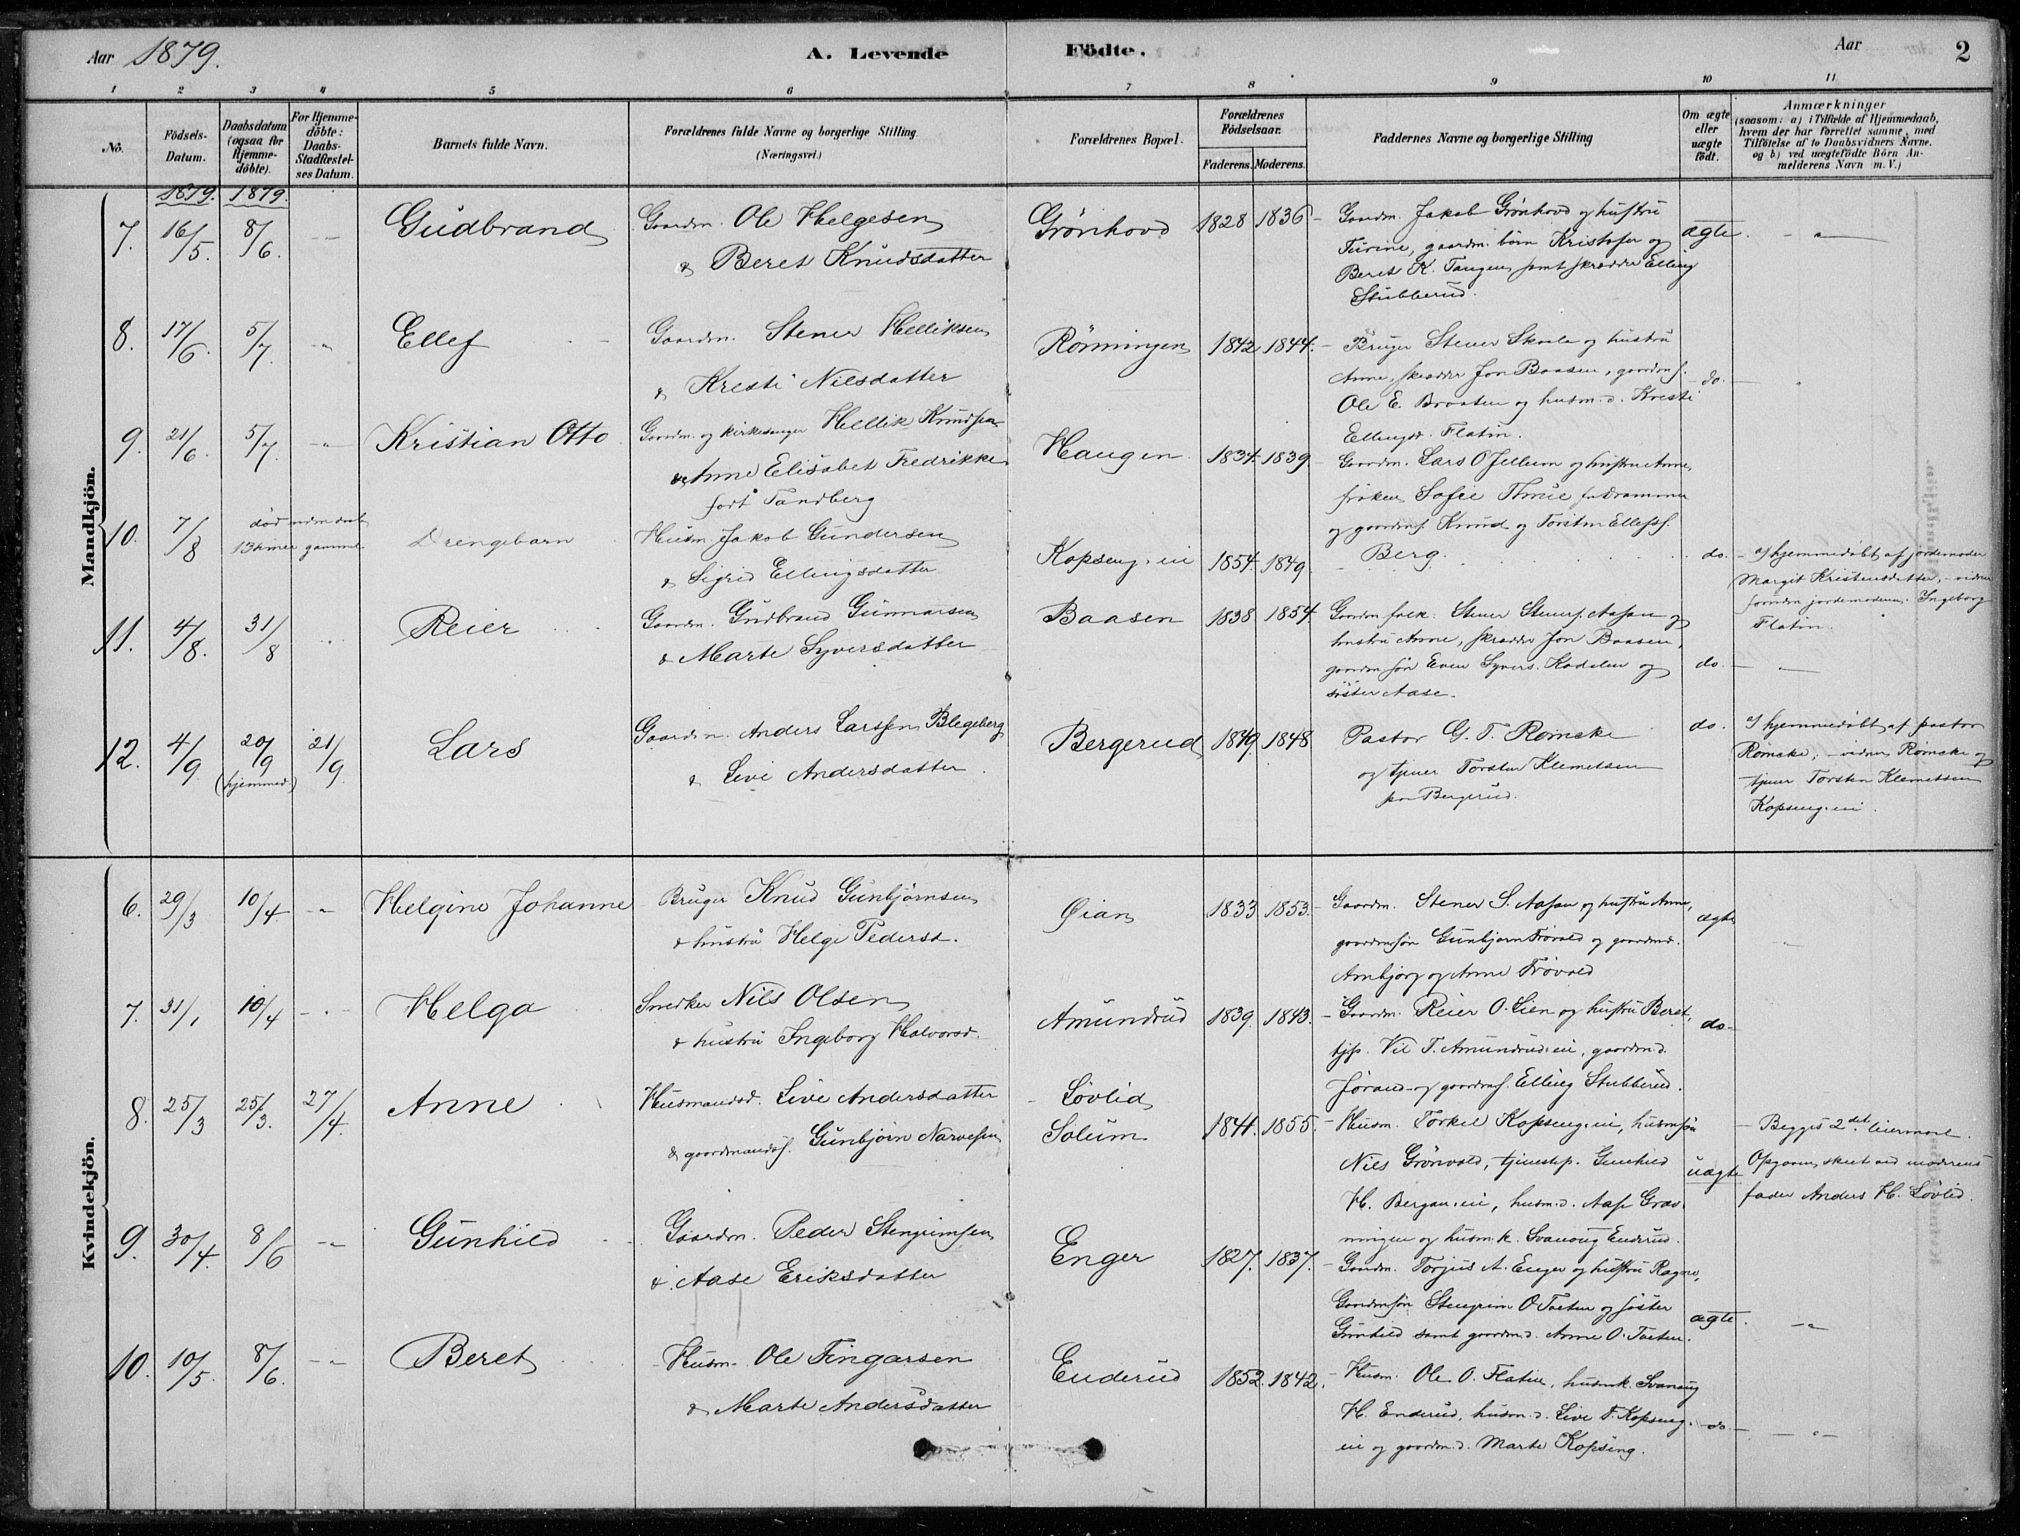 Aar 1879.
A. Levende Födte.
Aar
2
1 2 3 4 5 6 7 8 9 10 11
No.
Födsels-Datum.
Daabsdatum (ogsaa for Hjemme-döbte).
For Hjemme-döbte: Daabs-Stadfæstel-ses Datum.
Barnets fulde Navn.
Forældrenes fulde Navne og borgerlige Stilling.
(Næringsvei.)
Forældrenes Bopæl.
Forældrenes Födselsaar.
Faderens. Moderens.
Faddernes Navne og borgerlige Stilling
Om ægte eller uægte födt.
Anmærkninger
(saasom: a) i Tilfælde af Hjemmedaab,
hvem der har forrettet samme, med
Tilföielse af to Daabsvidners Navne.
og b) ved uægtefödte Börn An-
melderens Navn m. V.)
Mandkjön.
1879. 1879.
7. 16/5. 8/6. Gudbrand
Gaardm. Ole Helgesen
& Beret Knudsdatter
Grönhovd 1828 1836
Gaardm. Jakob Grönhovd og hustru
Turine, gaardm. börn Kristofer og
Beret K. Tangen samt skrædder Elling
Stubberud.
ægte.
8. 17/6. 5/7. Ellef
Gaardm. Stener Helliksen
& Kresti Nilsdatter
Rönningen 1842 1844.
Bruger Stener Skarle og hustru
Anne, skrædder Jon Baasen, gaardms.
Ole E. Braaten og husm. d. Kresti
Ellingsd. Flatin.
do.
9. 21/6. 5/7. Kristian Otto
Gaardm. og kirkesanger Hellik Knudsen
& Anne Elisabet Fredrikke
född Tandberg
Haugen 1834 1839
Gaardm. Lars O Jellum og hustru Anne,
fröken Sofie Thrue fra Drammen
og gaardms. Knud og Torsten Ellefss.
Berg.
10. 7/8 död uden daab
13 timer gammel.
Drengebarn
Husm. Jakob Gundersen
& Sigrid Ellingsdatter
Kopseng. ei 1854. 1849.
do.
a) hjemmedöbt af jordemoder
Margit Kristensdatter, vidner
foruden jordemoderen Ingeborg
Flatin.
11. 4/8. 31/8 Reier
Gaardm. Gudbrand Gunnarsen
& Marte Syversdatter
Baasen 1838 1854
Gaardm. folk. Stener Steners. Aasan og
hustru Anne, skrædder Jon Baasen,
gaardm. sön Even Syvers. Kodalen og
söster Aase.
do.
12. 4/9 20/9 21/9. Lars
(hjemmed.)
Gaardm. Anders Larssen Blegeberg
& Live Andersdatter.
Bergerud 1849 1848
Pastor G. T. Römcke
og tjener Torsten Klemetsen
paa Bergerud.
do.
a) hjemmedöbt af pastor
Römcke, vidner Römcke og
tjener Torsten Klemetsen
Kopseng. ei.
Kvindekjön.
6. 29/3 10/4 Helgine Johanne
Bruger Knud Gunbjörnsen
& hustru Helge Pedersd.
Öian 1833 1853.
Gaardm. Stener S. Aasan og hustru Anne,
gaardmsön Gunbjörn Trövold og gaardmd.
Arnbjörg og Anne Trövold
ægte
7. 31/1 10/4 Helga
Snedker Nils Olsen
& hustru Ingeborg Halvorsd.
Amundrud 1839 1843.
Gaardm. Reier O. Lien og hustru Beret,
tjp. Vil T. Amundrud. ei, gaardm. d.
Jörand og gaardms. Elling Stubberud.
do
8. 25/3 25/3. 27/4. Anne
Husmandsd. Live Andersdatter
& gaardmands. Gunbjörn Narvesen
Lövlid
Solum 1841. 1855.
Husm. Torkel Kopseng. ei, husmsön
Nils Grönvold, tjenestep. Gunhild
H. Bergan. ei, husm. d. Aase Grav-
ningen og husm. k. Svanoug Enderud.
uægte
Begges 2det leiermaal.
Opgaven skeet ved moderens
fader Anders H. Lövlid.
9. 30/4. 8/6 Gunhild
Gaardm. Peder Stengrimsen
& Aase Eriksdatter
Enger 1827. 1837.
Gaardm. Torjus A. Enger og hustru Ragne,
Gaardmsön Stengrim O Toeten og söster
Gunhild samt gaardm. d. Anne O. Toeten.
ægte.
10. 10/5. 8/6. Beret
Husm. Ole Fingarsen
& Marte Andersdatter
Enderud 1852. 1842.
Husm. Ole O. Flatin, husm. k. Svanaug
H. Enderud, husm. d. Live T. Kopseng.
ei og gaardm. d. Marte Kopseng.
do